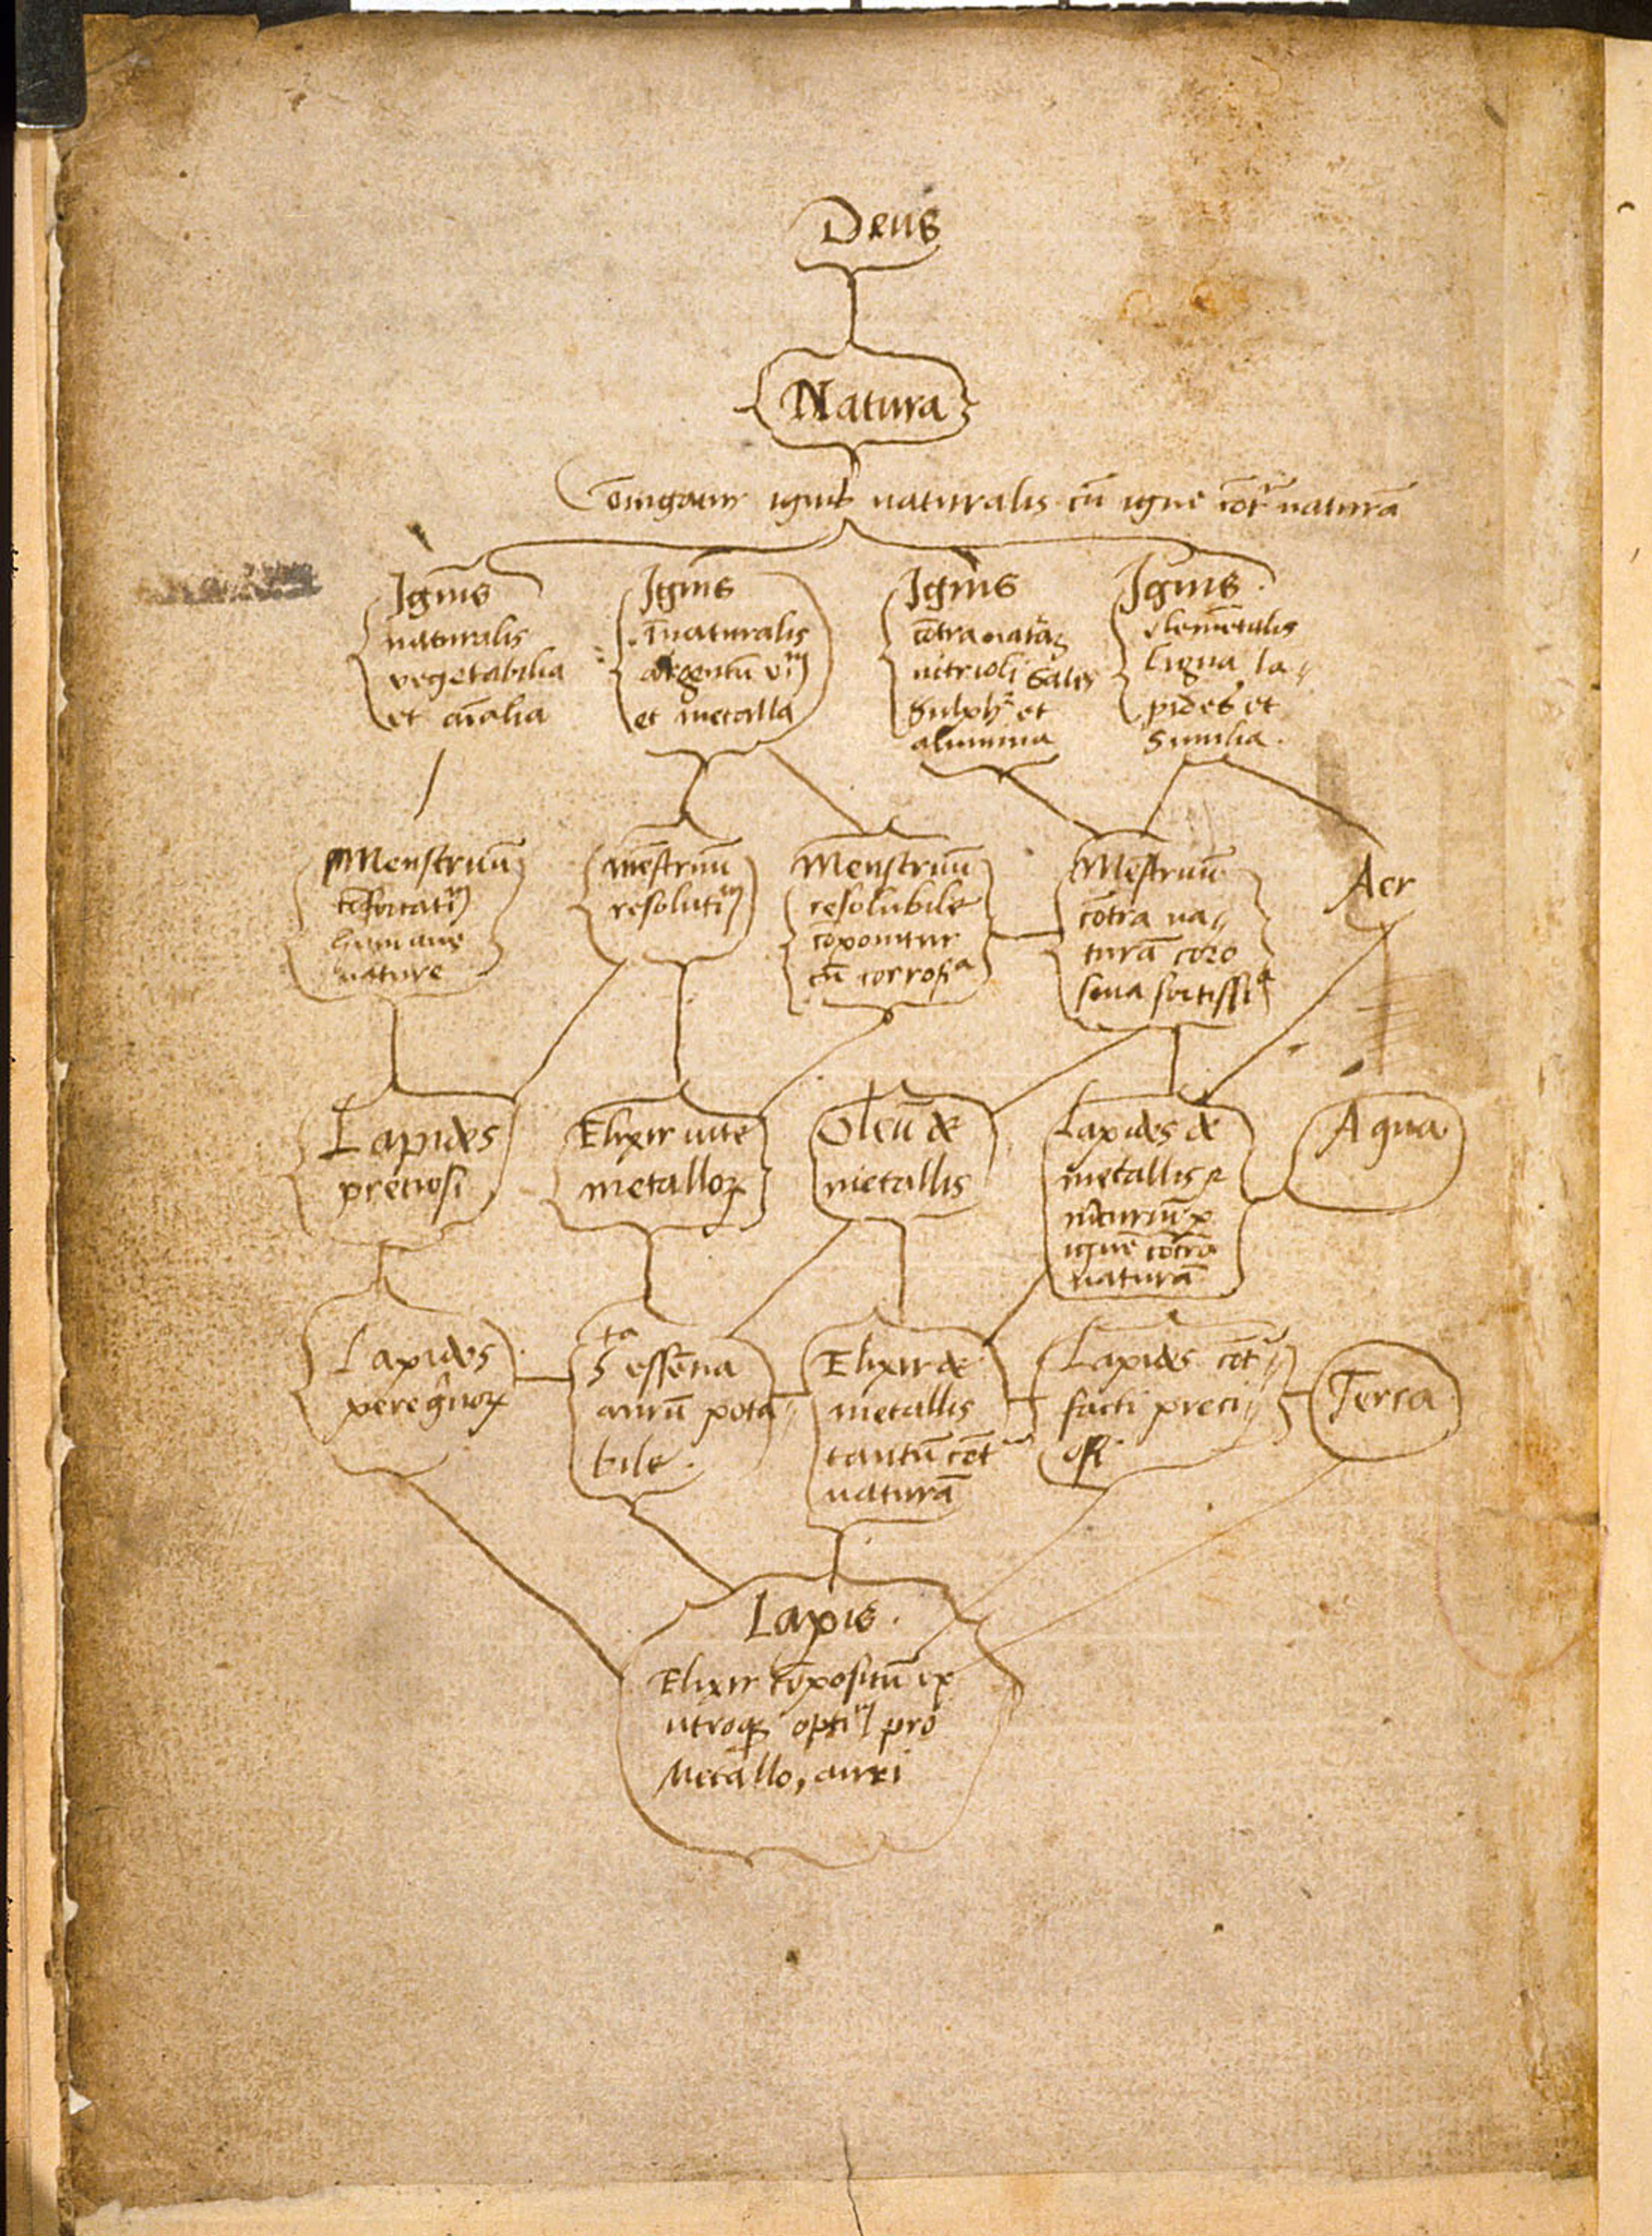 Deus
Natura
Coniugatur ignis naturalis cū igne cōtᵃ naturā
Ignis
naturalis
vegetabilia
et aīalia
Ignis
īnaturalis
argentū viᵐ
et metalla
Ignis
cōtra naturā
vitrioli Sales
Sulph et
alumina
Ignis
elemētalis
Ligna la⸗
pides et
Similia.
Menstruū
cōfortatiᵐ
humane
nature
mēstruū
resolutiᵐ
Menstruū
resolubile
cōponitur
cū corrosiᵃ
Mēstruū
cōtra na⸗
turā coro
siua fortissiᵃ
Aer
Lapides
preciosi
Elixir uite
metalloꝝ
Oleū de
metallis
Lapides de
metallis
igne cōtra
naturā
Aqua
Lapides
peregrinoꝝ
5ᵗᵃ essētia
aurū pota⸗
bile.
Elixir de
metallis
tantū cōtᵃ
naturā
Lapides cōtᵃ
facti preci⸗
osi
Terra
Lapis.
Elixir cōpositū ex
utroqꝫ optiᵐ pro
Metallo, auri